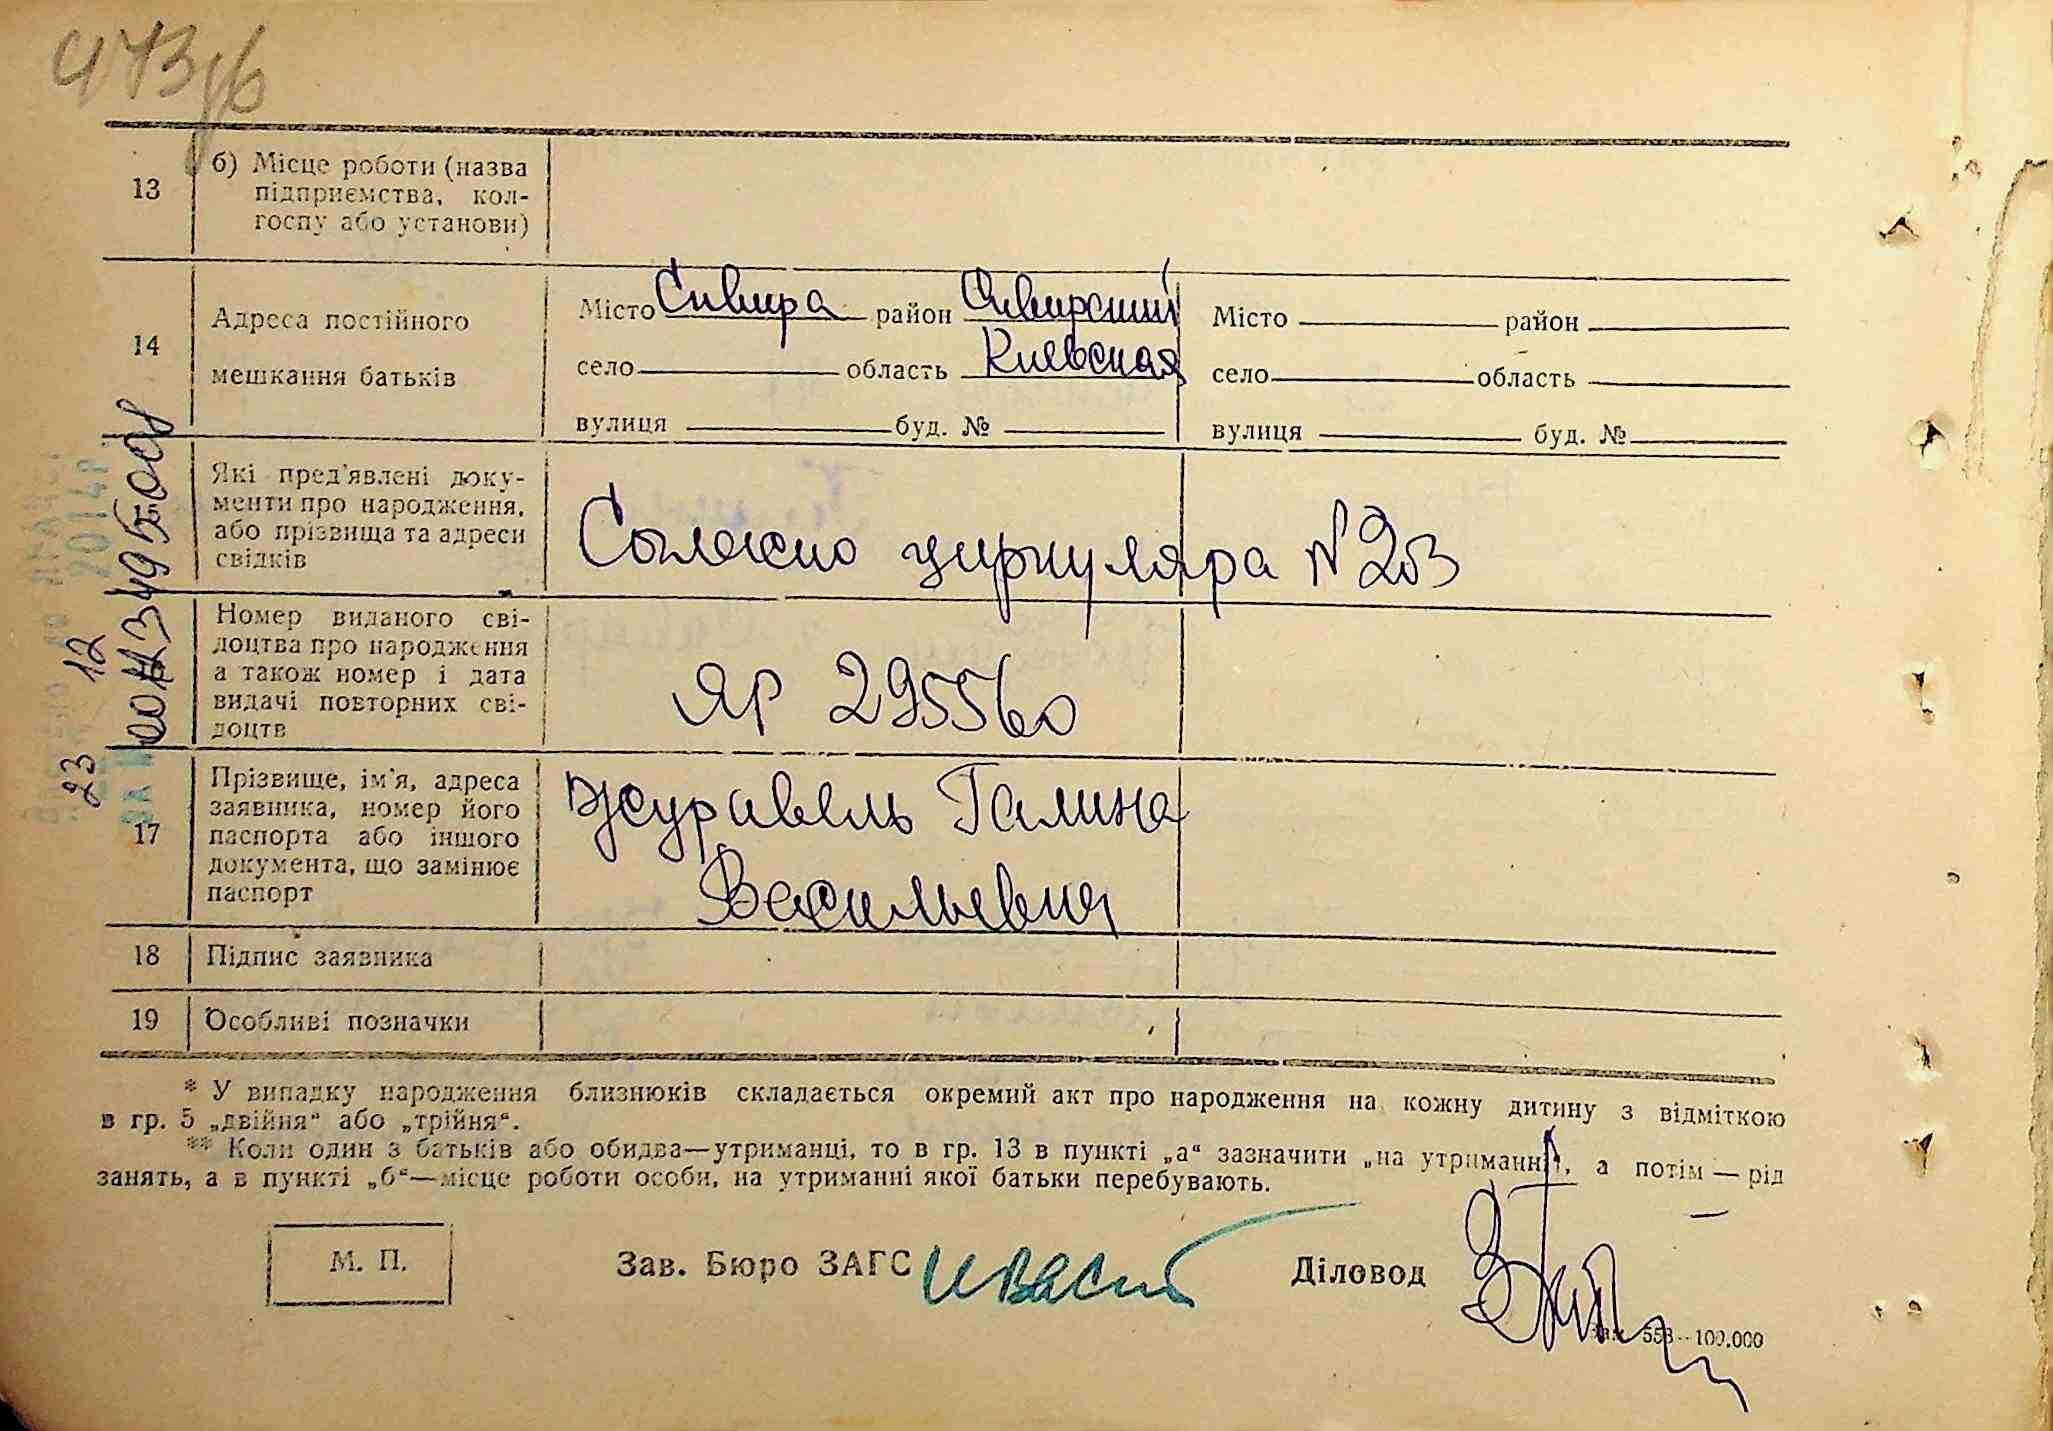 473
13
б) Місце роботи (назва
підприємства, кол-
госпу або установи)
14
Адреса постійного
мешкання батьків
Місто Сквира район Сквирский
село область Киевская
вулиця буд. №
Місто район
село область
вулиця буд. №
Які пред'явлені доку-
менти про народження,
або прізвища та адреси
свідків
Согласно циркуляра №203
Номер виданого сві-
доцтва про народження
а також номер і дата
видачі повторних сві-
доцтв
ЯР 295560
17
Прізвище, ім'я, адреса
заявника, номер його
паспорта або іншого
документа, що замінює
паспорт
Журавель Галина
Васильевна
18
Підпис заявника
19
Особливі позначки
* У випадку народження близнюків складається окремий акт про народження на кожну дитину з відміткою
в гр. 5 „двійня“ або „трійня“.
** Коли один з батьків або обидва—утриманці, то в гр. 13 в пункті „а“ зазначити „на утриманні“, а потім — рід
занять, а в пункті „б“—місце роботи особи, на утриманні якої батьки перебувають.
М. П.
Зав. Бюро ЗАГС
Діловод
Зак. 553—100.000
23 12
2014